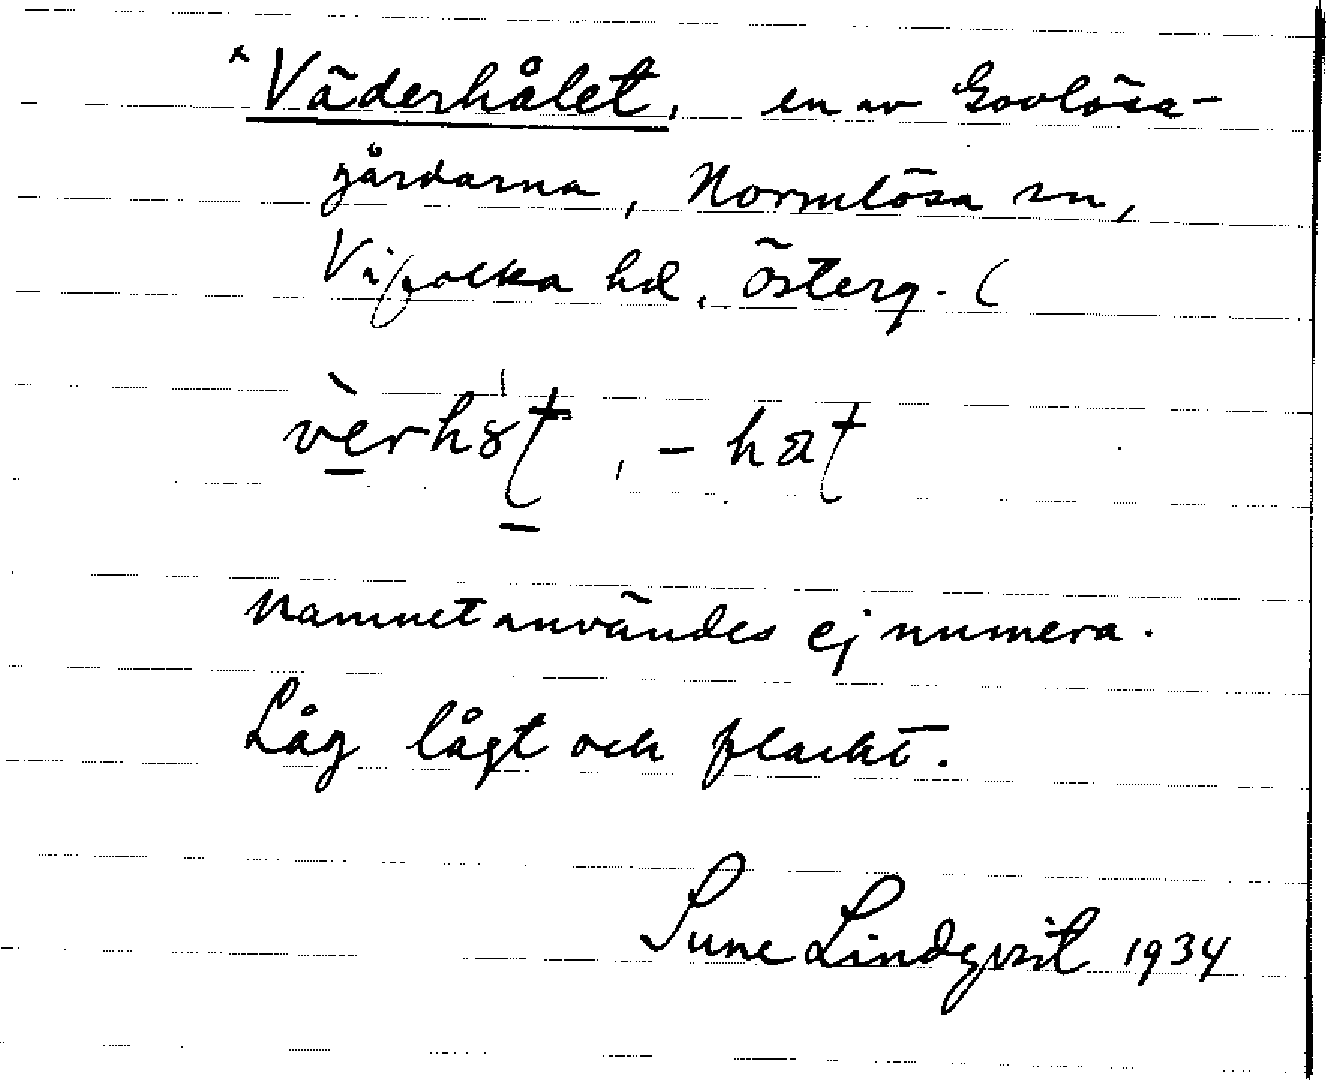 ˣVäderhålet, en av Goolösa-
gårdarna, Normlösa sn,
Vifolka hd, Österg. (
vèrhåt, -hat
Namnet användes ej numera.
Låg lågt och flackt.
Sune Lindqvist 1934